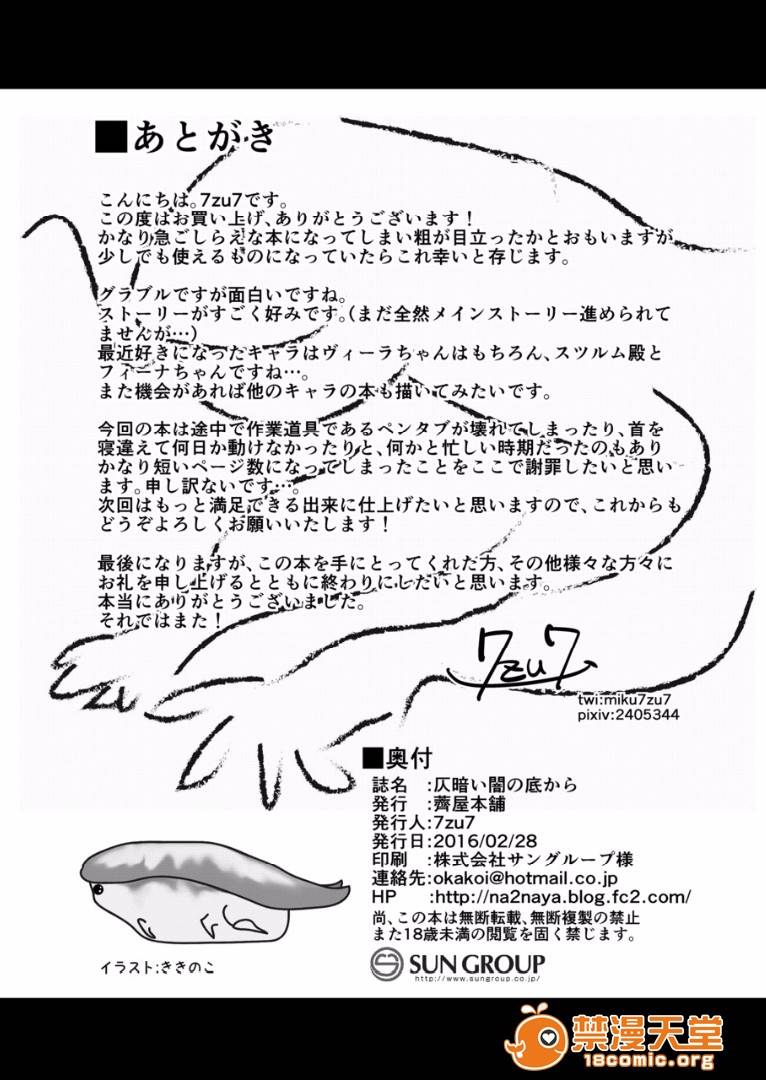 ■あとがき
こんにちは。7zu7です。
この度はお買い上げ、ありがとうございます！
かなり急ごしらえな本になってしまい粗が目立ったかとおもいますが
少しでも使えるものになっていたらこれ幸いと存じます。
グラブルですが面白いですね。
ストーリーがすごく好みです。(まだ全然メインストーリー進められて
ませんが…)
最近好きになったキャラはヴィーラちゃんはもちろん、スツルム殿と
フィーナちゃんですね…。
また機会があれば他のキャラの本も描いてみたいです。
今回の本は途中で作業道具であるペンタブが壊れてしまったり、首を
寝違えて何日か動けなかったりと、何かと忙しい時期だったのもあり
かなり短いページ数になってしまったことをここで謝罪したいと思い
ます。申し訳ないです…。
次回はもっと満足できる出来に仕上げたいと思いますので、これからも
どうぞよろしくお願いいたします！
最後になりますが、この本を手にとってくれた方、その他様々な方々に
お礼を申し上げるとともに終わりにしたいと思います。
本当にありがとうございました。
それではまた！
7zu7
twi:miku7zu7
pixiv:2405344
■奥付
誌名　:仄暗い闇の底から
発行　:薺屋本舗
発行人:7zu7
発行日:2016/02/28
印刷　:株式会社サングループ様
連絡先:okakoi@hotmail.co.jp
HP　　:http://na2naya.blog.fc2.com/
尚、この本は無断転載、無断複製の禁止
また18歳未満の閲覧を固く禁じます。
SUN GROUP
http://www.sungroup.co.jp/
イラスト:ききのこ
禁漫天堂
18comic.org